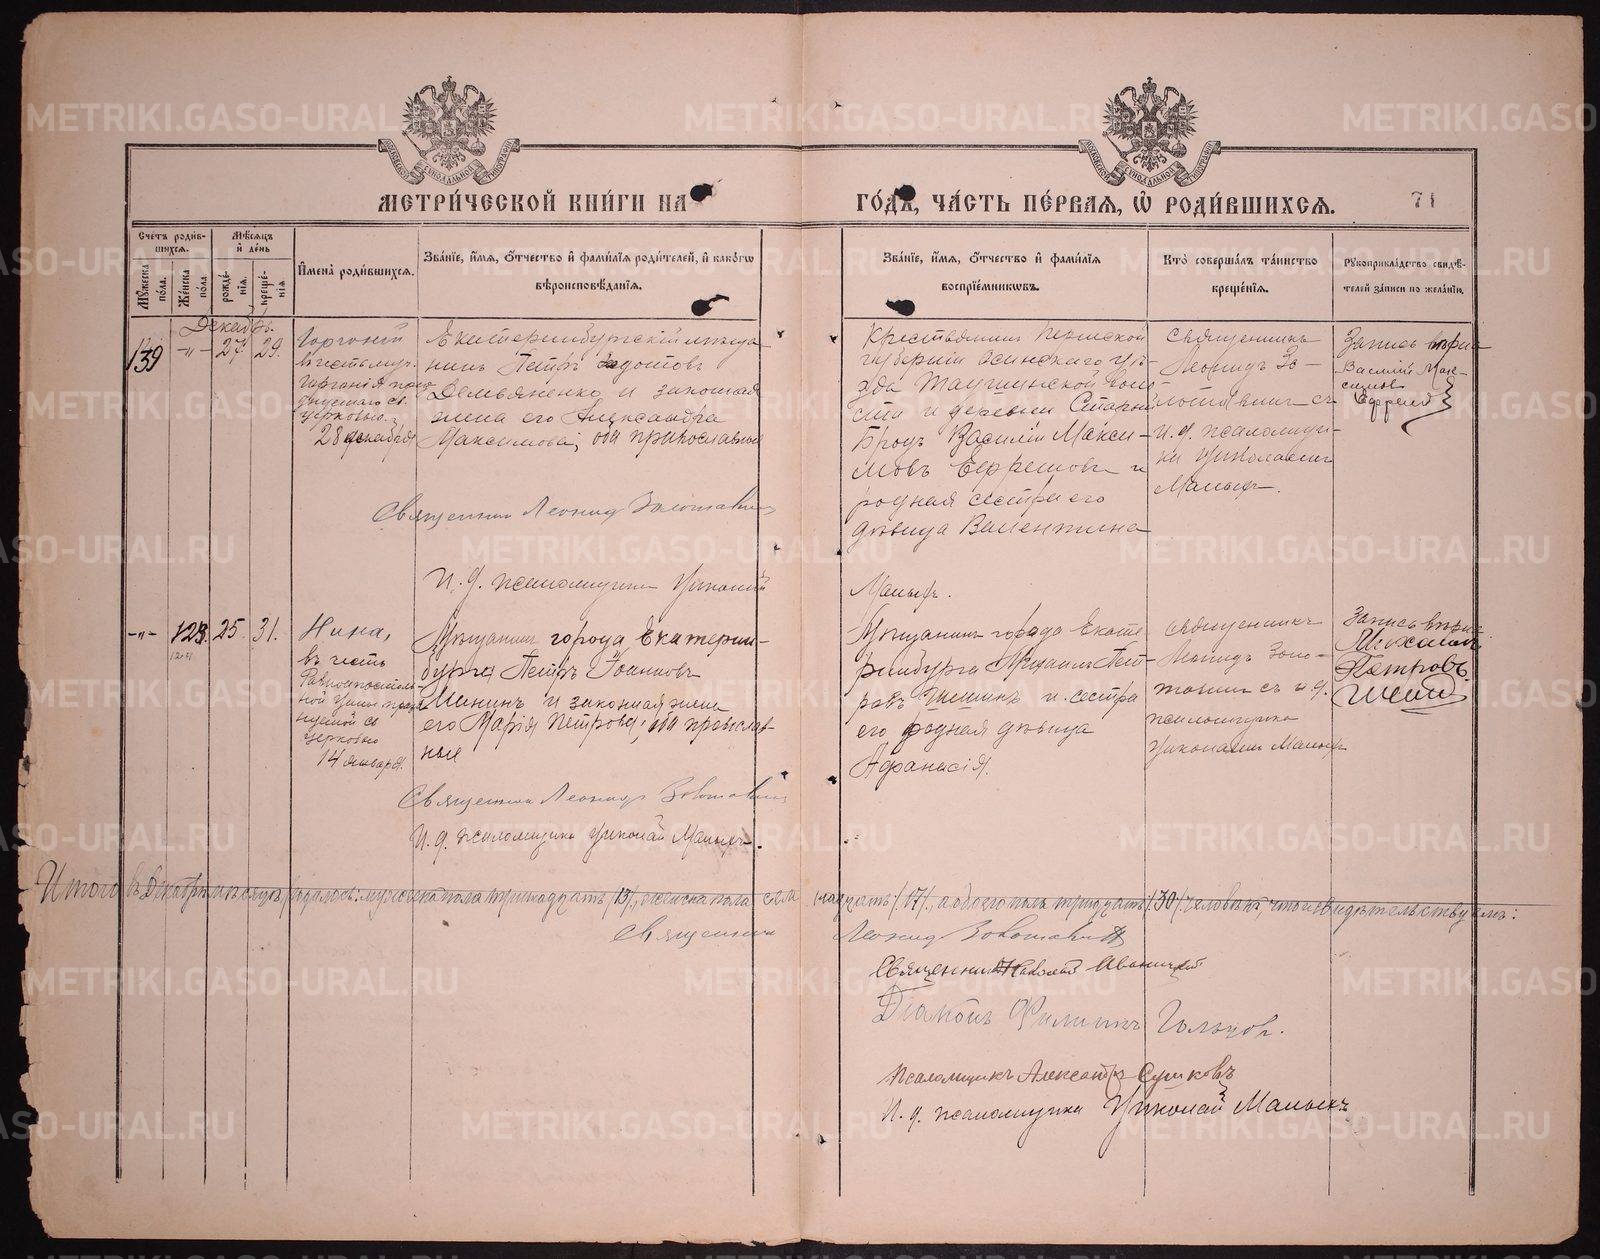 МЕТРИ́ЧЕСКОЙ КНИ́ГИ НА
ГО́ДЪ, ЧА́СТЬ ПЕ́РВАЯ, Ѿ РОДИ́ВШИХСЯ.
71
Сче́тъ роди́в-
шихся.
Мѣ́сяцъ
и҆ де́нь
Мꙋ́жеска по́ла.
Же́нска по́ла.
рожде́-
нїя.
креще́-
нїя
И҆мена̀ роди́вшихся.
Зва́нїе, и҆́мя, ѻ҆́тчество и҆ фами́лїя роди́телей, и҆ како́гѡ
вѣроисповѣ́данїя.
Зва́нїе, и҆́мя, ѻ҆́тчество и҆ фами́лїя
воспрїе́мникѡвъ.
Кто̀ соверша́лъ та́инство
креще́нїя.
Рꙋкоприкла́дство свидѣ́-
телей за́писи по жела́нїю.
Декабрь.
139
-"-
27.
29.
Горгоній
въ честь муч.
Горгонія
св.
церковью
28 декабря
Екатеринбургскій мѣща-
нинъ Петръ
Демьяненко и законная
жена его Александра
Максимова, оба православные
Священникъ Леонид Золотавинъ
И. д. псаломщика Николай
Крестьянинъ Пермской
губерніи Осинскаго уѣ-
зда воло-
сти и деревни Старый
Бродъ Василій Макси-
мовъ Ефремовъ и
родная сестра его
дѣвица Валентина
Малыхъ.
Священникъ
Леонидъ Зо-
лотавинъ съ
и. д. псаломщи-
ка Николаемъ
Малыхъ.
Запись вѣрна
Василій Мак-
симов
Ефремов
-"-
123.
25.
31.
Нина,
въ честь
Равноапостоль-
ной Нины праз-
нуемой св
церковью
14 января.
Мѣщанинъ города Екатерин-
бурга Петръ Іоанновъ
Мининъ и законная жена
его Марія Петрова, оба православ-
ные
Священникъ Леонидъ Золотавинъ
И. д. псаломщика Николай Малыхъ.
Мѣщанинъ города Екате-
ринбурга Михаилъ Пет-
ровъ Шешинъ и сестра
его родная дѣвица
Афанасія.
Священникъ
Леонидъ Золо-
тавинъ съ и. д.
псаломщика
Николаемъ Малыхъ
Запись вѣрна
Михаилъ
Петровъ
Итого въ Декабрѣ мѣсяцѣ родилось: мужеска пола тринадцать /13/, женска пола семнадцать /17/, а обоего пола тридцать /30/ человѣкъ, что и свидѣтельствуемъ:
Священникъ Леонид Золотавинъ
Священникъ Николай Иваницкій
Діаконъ Филиппъ Гольцов.
Псаломщикъ Александръ Сушковъ
И. д. псаломщика Николай Малыхъ
METRIKI.GASO-URAL.RU